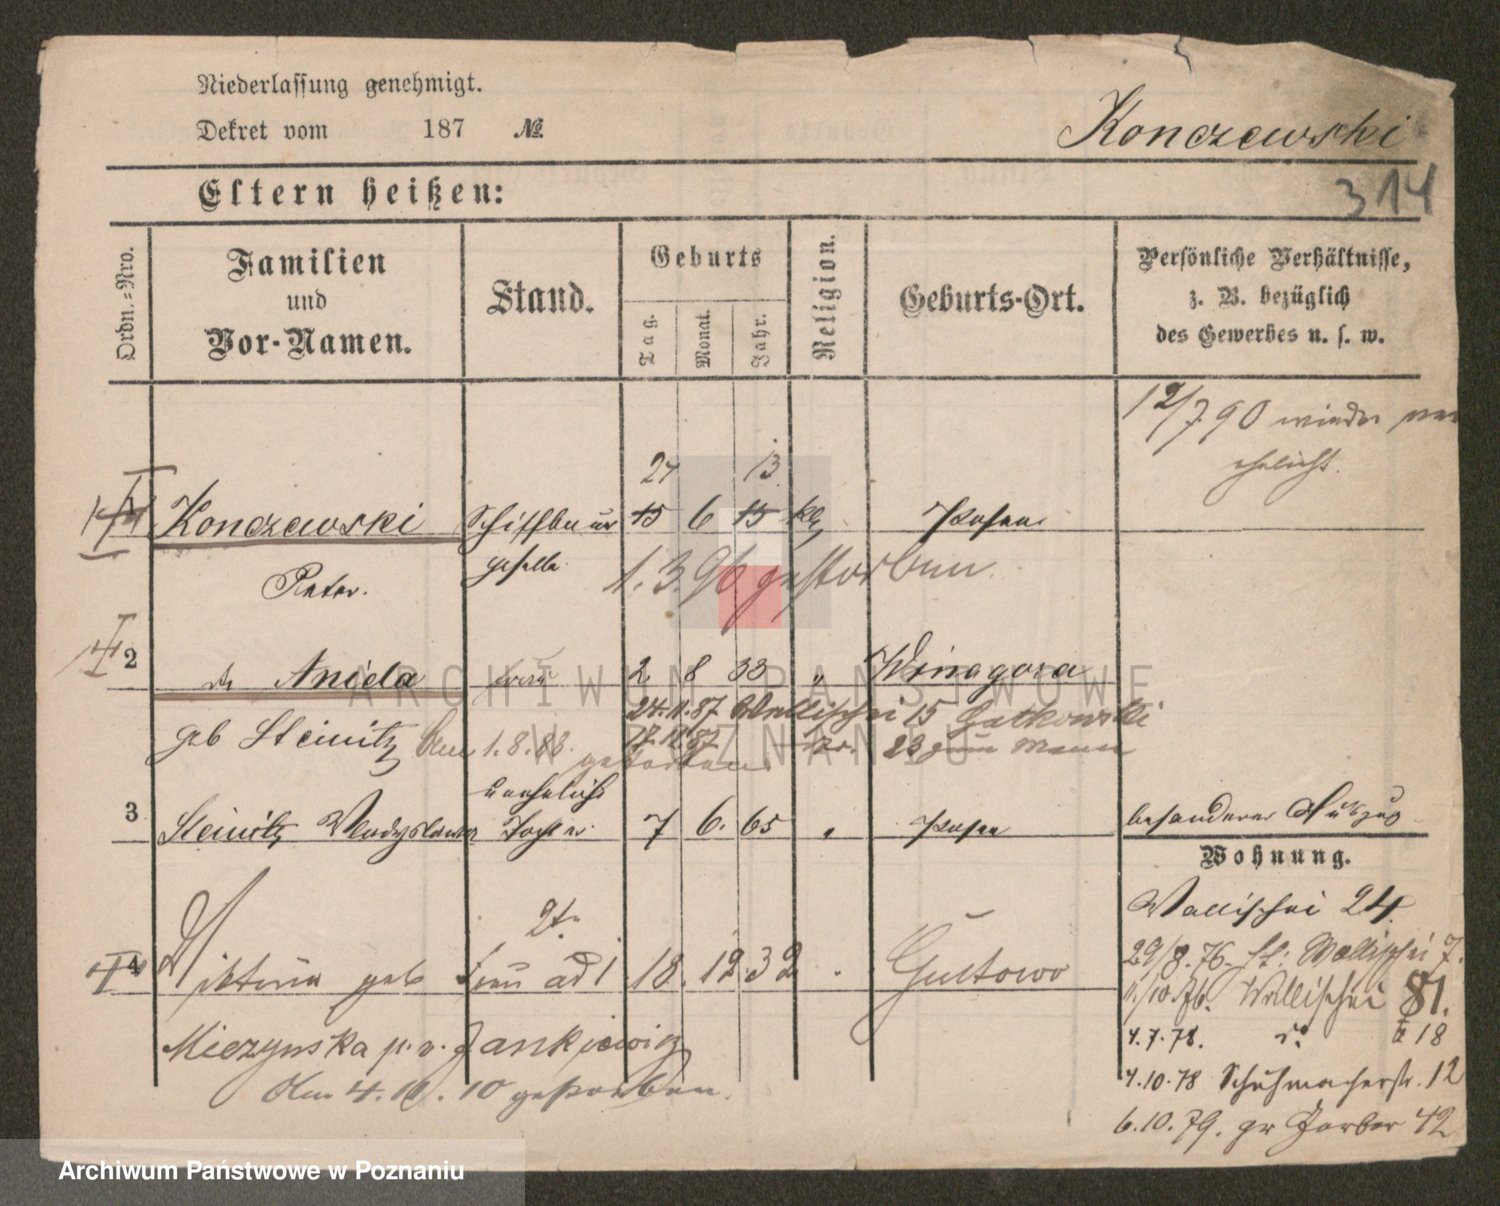 Niederlassung genehmigt.
Dekret vom 187 №
Konczewski
314
Eltern heißen:
Ordn.=Nro.
Familien
und
Vor-Namen.
Stand.
Geburts
Tag.
Monat.
Jahr.
Religion.
Geburts-Ort.
Persönliche Verhältnisse,
z. B. bezüglich
des Gewerbes u. s. w.
12/7 90 wieder ver
ehelicht.
24 13
1 Konczewski Schiffbauer 15 6 15 kth Posen
geselle
Peter.
1.3.96 gestorben.
2 Aniela Frau 2 8 33 " Winagora
24.11.87 Wallischei 15 Gatkowski
geb Steinitz 1.8.88. 17.12.87 23 zum Mann
gestorben
unehelich
3 Steinitz Wladyslawa Tochter 7 6. 65 " Posen besonderer Auszug
Wohnung.
Wallischei 24.
2te
29/8.76. Wallischei 7.
4 Viktoria geb Frau ad 1 18. 12. 32 " Gultowo
11/10 76. Wallischei 81.
Miezynska p. v. Jankiewicz
4.7.78. 18
4.10.78 Schuhmacherstr. 12
Am 4. 10. 10 gestorben.
6.10.79. gr Gerber 42
ARCHIWUM PAŃSTWOWE
W POZNANIU
Archiwum Państwowe w Poznaniu